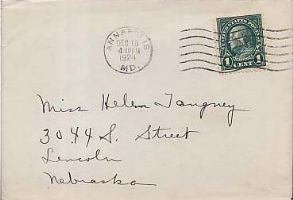 ANNAPOLIS
DEC 18
4 PM
1924
MD.
1 CENT 1
Miss Helen Tangney
3044 S. Street
Lincoln
Nebraska